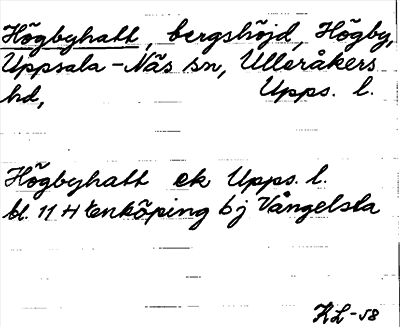 Högbyhatt, bergshöjd, Högby,
Uppsala-Näs sn, Ulleråkers
hd, Upps. l.
Högbyhatt ek Upps. l.
bl. 11 H Enköping bj Vångelsta
KL-58